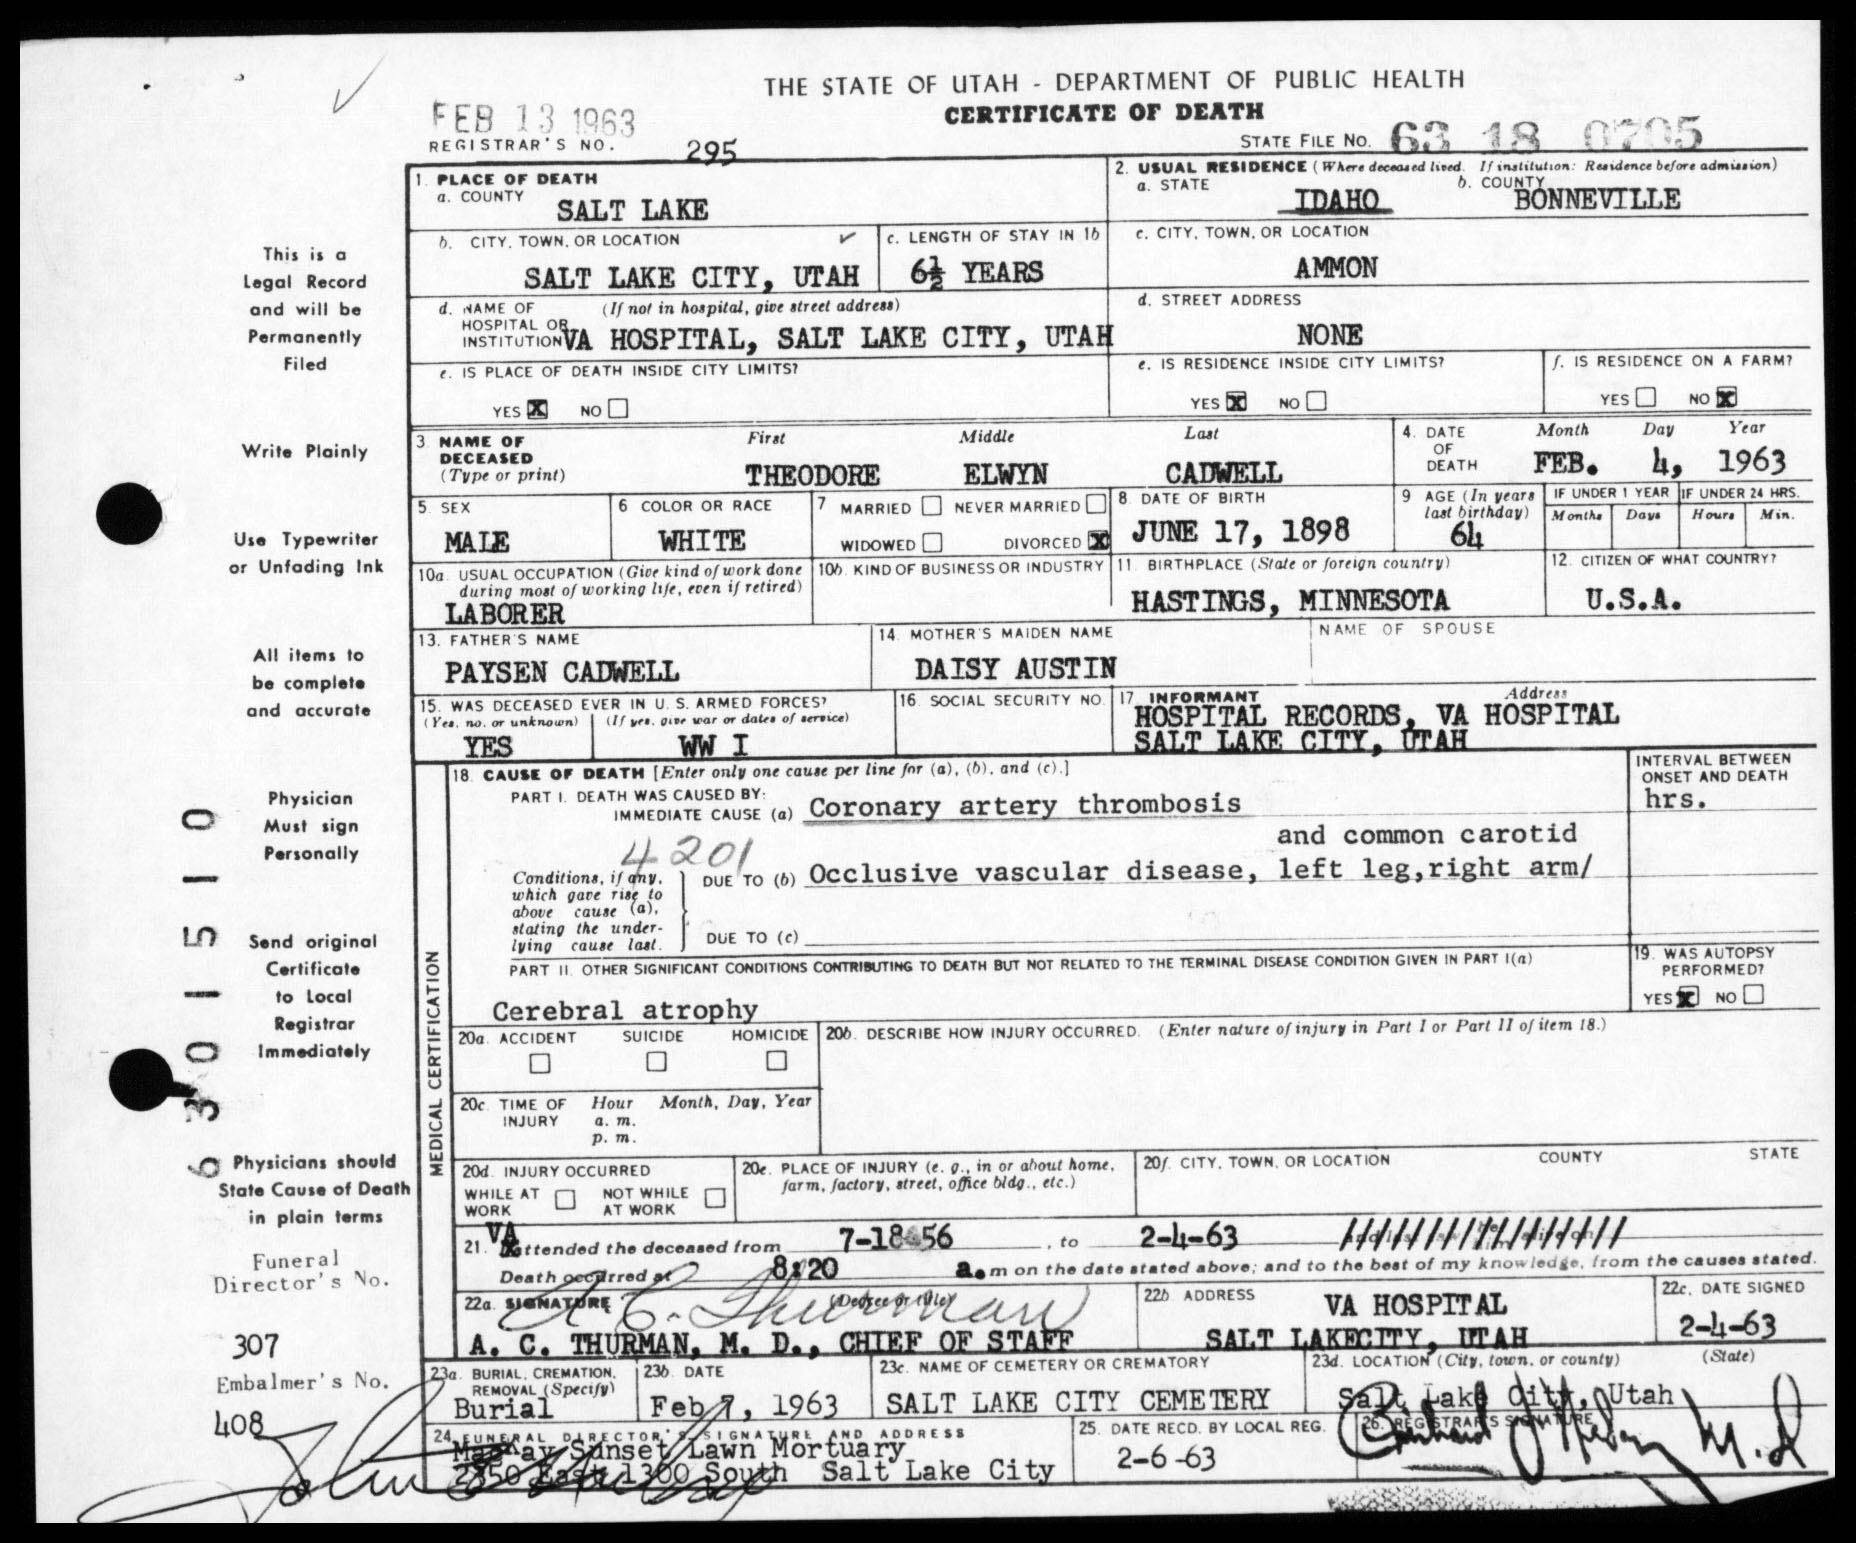 THE STATE OF UTAH - DEPARTMENT OF PUBLIC HEALTH
CERTIFICATE OF DEATH
FEB 13 1963
REGISTRAR'S NO. 295
STATE FILE NO. 63 18 0705
1. PLACE OF DEATH
a. COUNTY
SALT LAKE
2. USUAL RESIDENCE (Where deceased lived. If institution: Residence before admission)
a. STATE IDAHO b. COUNTY BONNEVILLE
b. CITY, TOWN, OR LOCATION
SALT LAKE CITY, UTAH
c. LENGTH OF STAY IN 1b
6½ YEARS
c. CITY, TOWN, OR LOCATION
AMMON
d. NAME OF (If not in hospital, give street address)
HOSPITAL OR
INSTITUTION VA HOSPITAL, SALT LAKE CITY, UTAH
d. STREET ADDRESS
NONE
e. IS PLACE OF DEATH INSIDE CITY LIMITS?
YES X NO
e. IS RESIDENCE INSIDE CITY LIMITS?
YES X NO
f. IS RESIDENCE ON A FARM?
YES NO X
3. NAME OF DECEASED (Type or print)
First Middle Last
THEODORE ELWYN CADWELL
4. DATE OF DEATH
Month Day Year
FEB. 4, 1963
5. SEX
MALE
6 COLOR OR RACE
WHITE
7 MARRIED NEVER MARRIED
WIDOWED DIVORCED X
8. DATE OF BIRTH
JUNE 17, 1898
9 AGE (In years last birthday)
64
IF UNDER 1 YEAR
Months Days
IF UNDER 24 HRS.
Hours Min.
10a. USUAL OCCUPATION (Give kind of work done during most of working life, even if retired)
LABORER
10b. KIND OF BUSINESS OR INDUSTRY
11. BIRTHPLACE (State or foreign country)
HASTINGS, MINNESOTA
12. CITIZEN OF WHAT COUNTRY?
U.S.A.
13. FATHER'S NAME
PAYSEN CADWELL
14. MOTHER'S MAIDEN NAME
DAISY AUSTIN
NAME OF SPOUSE
15. WAS DECEASED EVER IN U. S. ARMED FORCES?
(Yes, no, or unknown) (If yes, give war or dates of service)
YES WW I
16. SOCIAL SECURITY NO.
17 INFORMANT Address
HOSPITAL RECORDS, VA HOSPITAL
SALT LAKE CITY, UTAH
MEDICAL CERTIFICATION
18. CAUSE OF DEATH [Enter only one cause per line for (a), (b), and (c).]
INTERVAL BETWEEN
ONSET AND DEATH
PART I. DEATH WAS CAUSED BY:
IMMEDIATE CAUSE (a) Coronary artery thrombosis
hrs.
4201
and common carotid
DUE TO (b) Occlusive vascular disease, left leg,right arm/
Conditions, if any,
which gave rise to
above cause (a),
stating the under-
lying cause last.
DUE TO (c)
PART II. OTHER SIGNIFICANT CONDITIONS CONTRIBUTING TO DEATH BUT NOT RELATED TO THE TERMINAL DISEASE CONDITION GIVEN IN PART I(a)
Cerebral atrophy
19. WAS AUTOPSY
PERFORMED?
YES X NO
20a. ACCIDENT SUICIDE HOMICIDE
20b. DESCRIBE HOW INJURY OCCURRED. (Enter nature of injury in Part I or Part II of item 18.)
20c. TIME OF INJURY
Hour Month, Day, Year
a. m.
p. m.
20d. INJURY OCCURRED
WHILE AT WORK NOT WHILE AT WORK
20e. PLACE OF INJURY (e. g., in or about home, farm, factory, street, office bldg., etc.)
20f. CITY, TOWN, OR LOCATION COUNTY STATE
VA
21. attended the deceased from 7-18-56, to 2-4-63
Death occurred at 8:20 a.m on the date stated above; and to the best of my knowledge, from the causes stated.
22a. SIGNATURE (Degree or title)
A C. Thurman
A. C. THURMAN, M. D., CHIEF OF STAFF
22b ADDRESS
VA HOSPITAL
SALT LAKECITY, UTAH
22c. DATE SIGNED
2-4-63
23a. BURIAL, CREMATION, REMOVAL (Specify)
Burial
23b. DATE
Feb 7, 1963
23c. NAME OF CEMETERY OR CREMATORY
SALT LAKE CITY CEMETERY
23d. LOCATION (City, town, or county) (State)
Salt Lake City, Utah
24. FUNERAL DIRECTOR'S SIGNATURE AND ADDRESS
Sunset Lawn Mortuary
2350 East 1300 South Salt Lake City
25. DATE RECD. BY LOCAL REG.
2-6-63
26. REGISTRAR'S SIGNATURE
M.D
This is a
Legal Record
and will be
Permanently
Filed
Write Plainly
Use Typewriter
or Unfading Ink
All items to
be complete
and accurate
Physician
Must sign
Personally
Send original
Certificate
to Local
Registrar
Immediately
Physicians should
State Cause of Death
in plain terms
Funeral
Director's No.
307
Embalmer's No.
408
6 3 0 1 5 1 0